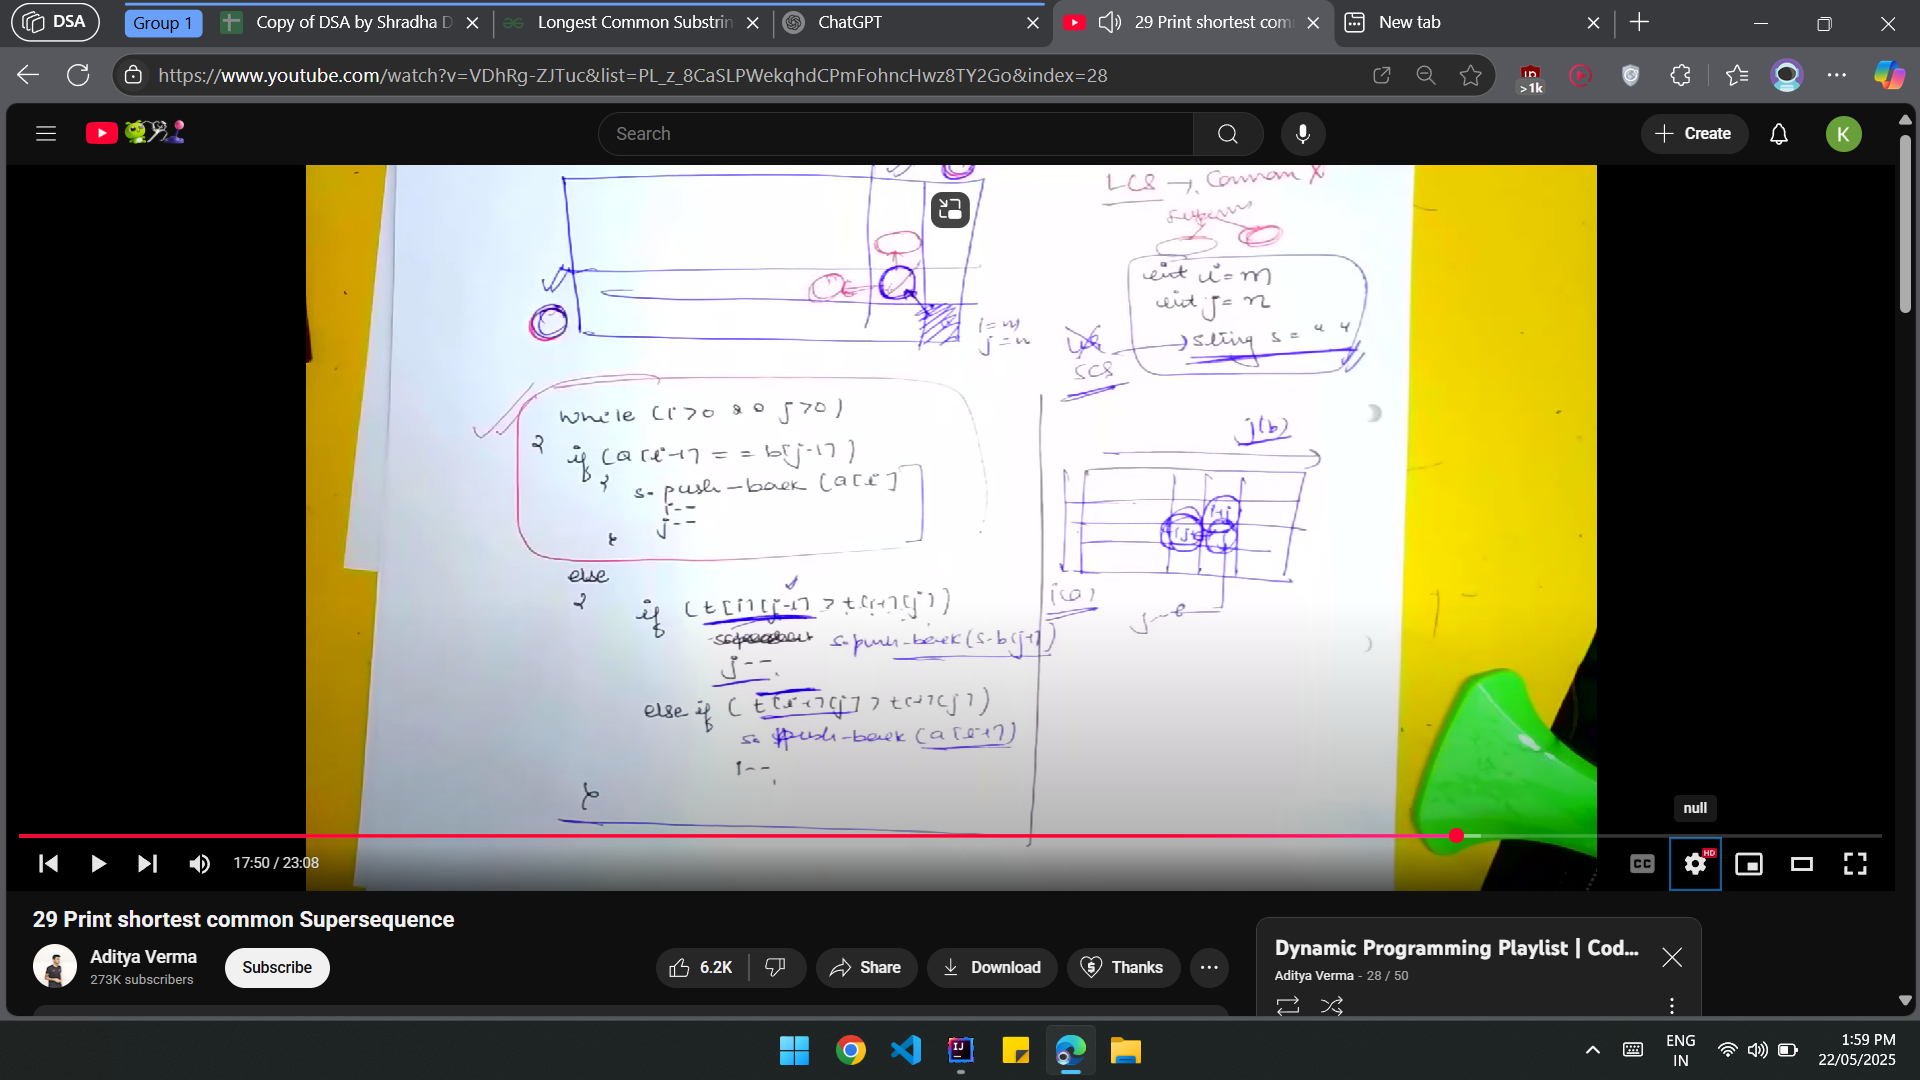 DSA
Group 1
Copy of DSA by Shradha D
Longest Common Substrin
ChatGPT
29 Print shortest com
New tab
https://www.youtube.com/watch?v=VDhRg-ZJTuc&list=PL_z_8CaSLPWekqhdCPmFohncHwz8TY2Go&index=28
>1k
Search
Create
K
LCS → Common X
int i=m
int j=n
string s = " "
i=m
j=n
SCS
while (i>0 && j>0)
{
if (a[i-1] == b[j-1])
{ s.push-back (a[i]
i--
j--
}
else
{
if (t[i][j-1] > t[i-1][j])
s.push-back(s.b[j-1])
j--
else if (t[i-1][j] > t[i][j-1])
s. push-back (a[i-1])
i--
}
j(b)
i(a)
j--
null
17:50 / 23:08
CC
HD
29 Print shortest common Supersequence
Aditya Verma
273K subscribers
Subscribe
6.2K
Share
Download
Thanks
Dynamic Programming Playlist | Cod...
Aditya Verma - 28 / 50
IJ
ENG
IN
1:59 PM
22/05/2025